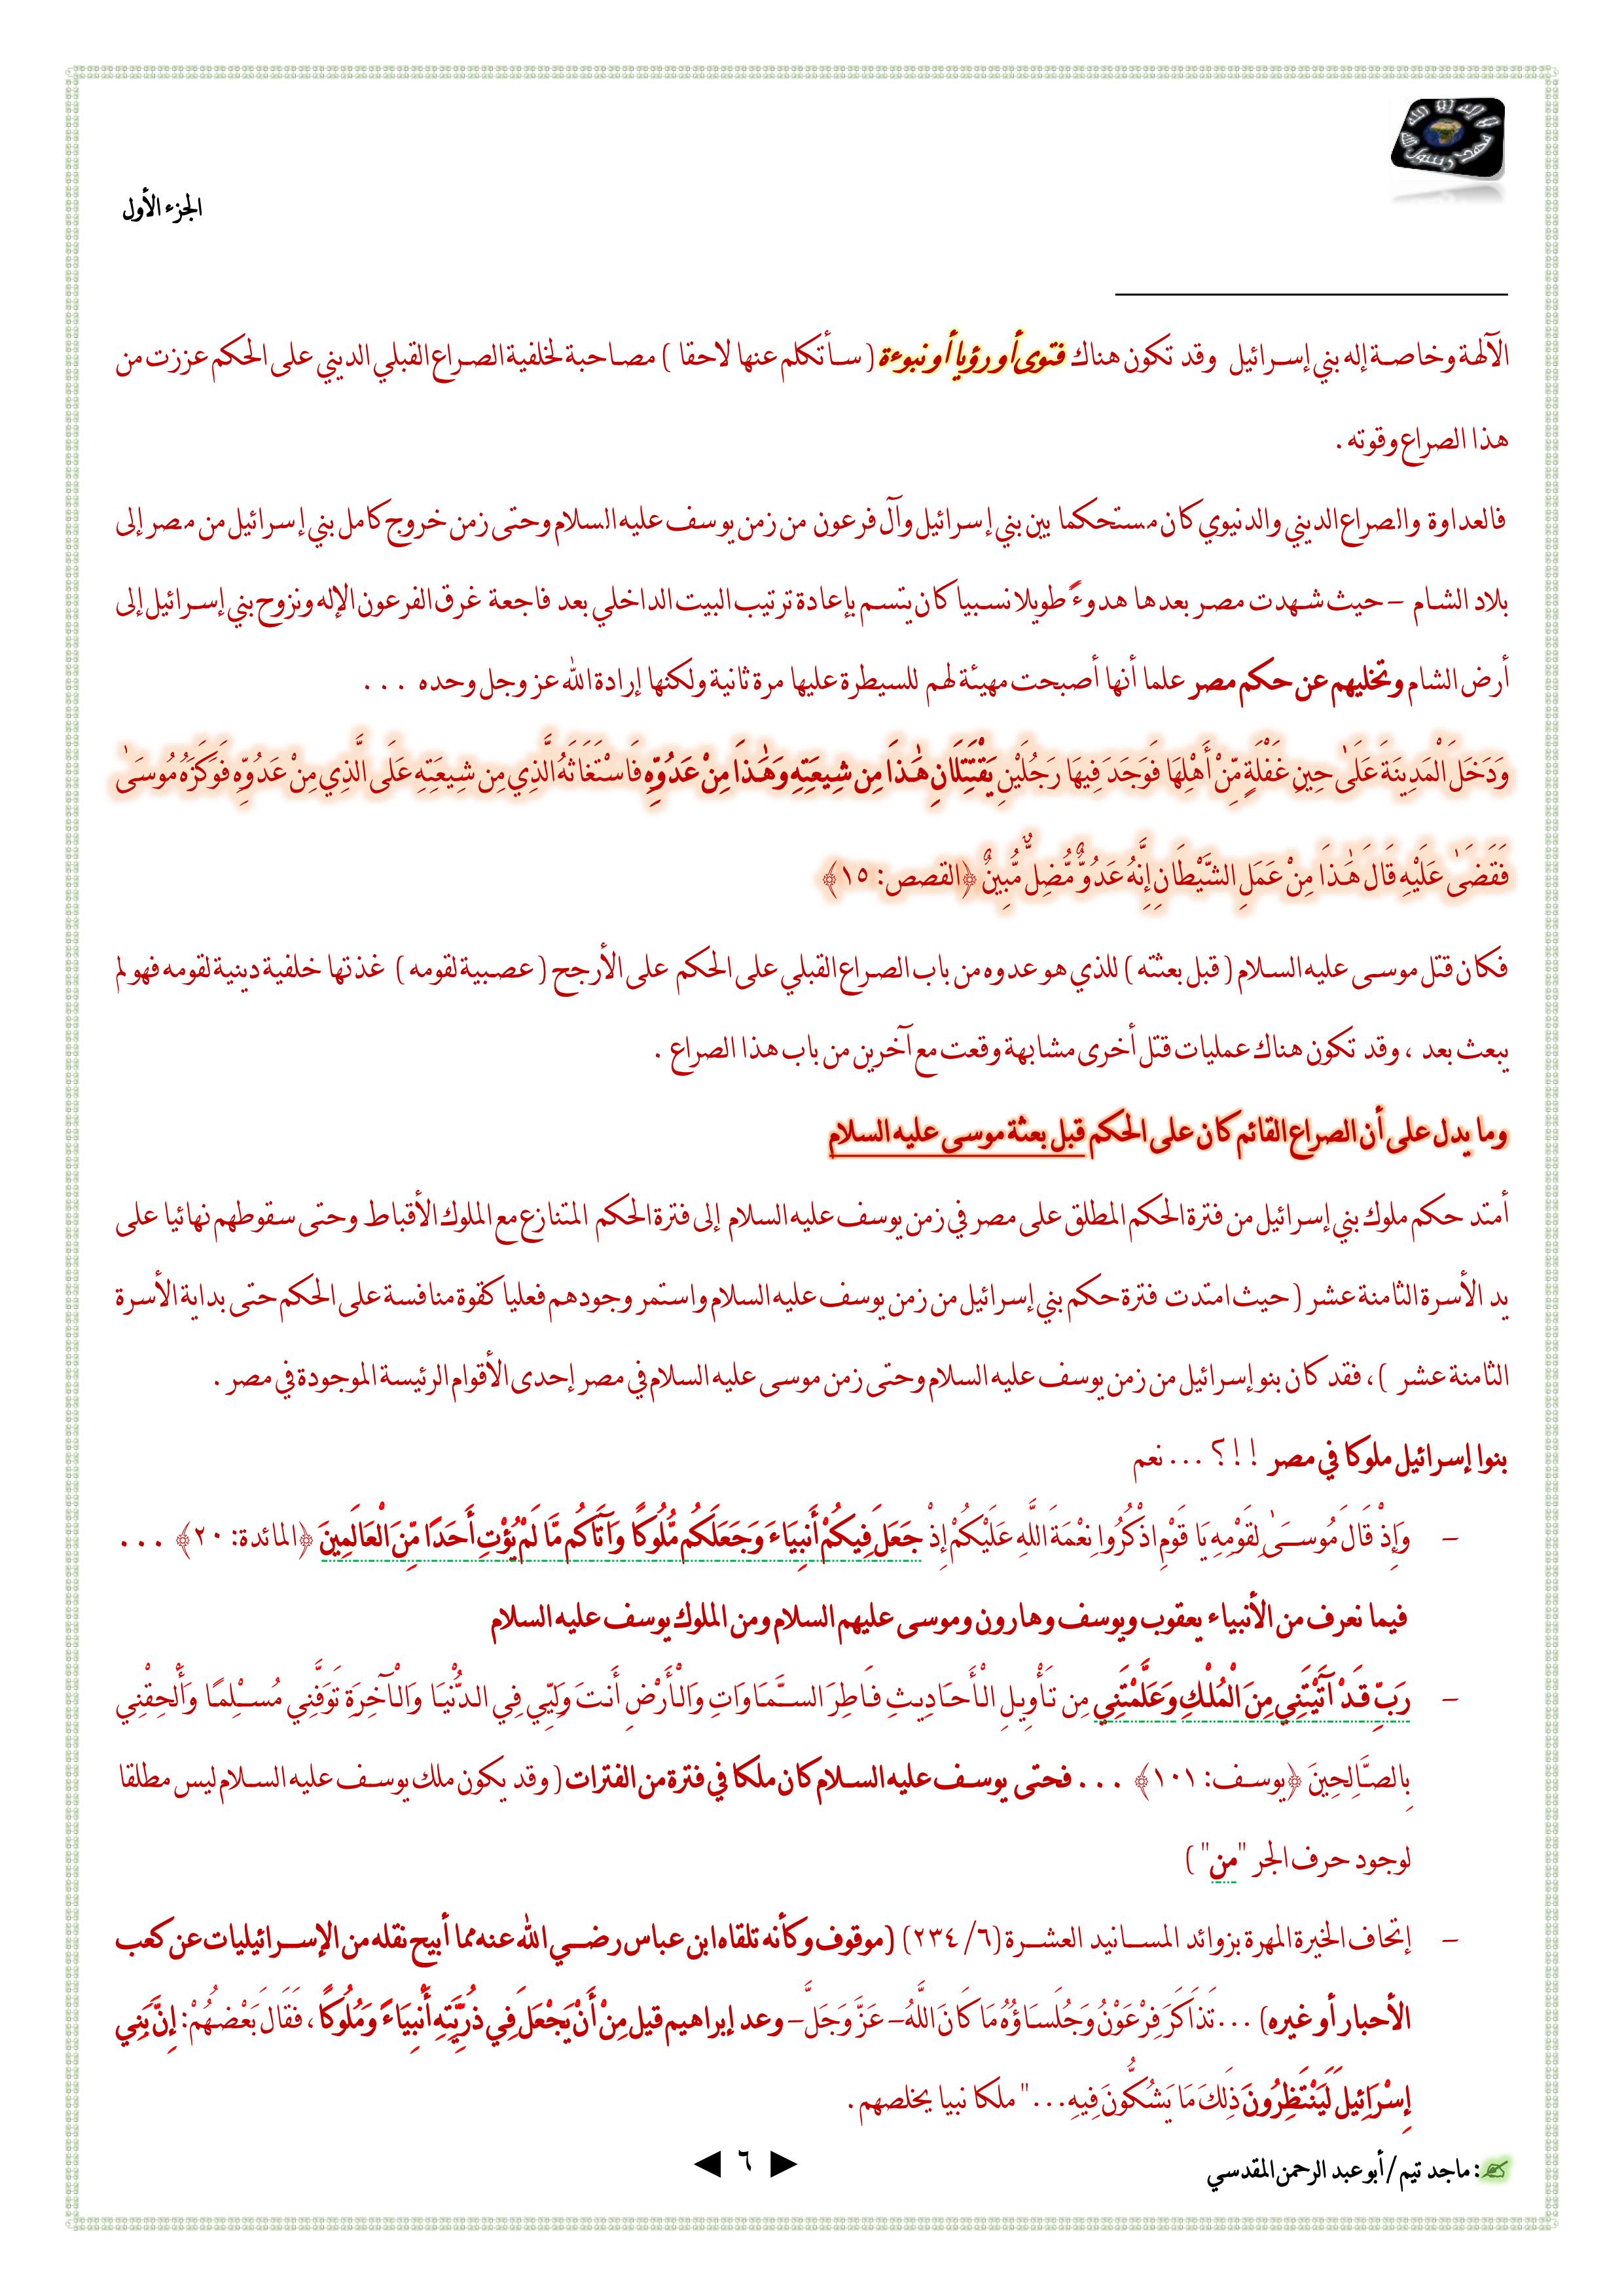 لا إله إلا الله
محمد رسول الله
الجزء الأول
الآلهة وخاصة إله بني إسرائيل وقد تكون هناك فتوى أو رؤيا أو نبوءة ( سأتكلم عنها لاحقا ) مصاحبة لخلفية الصراع القبلي الديني على الحكم عززت من
هذا الصراع وقوته .
فالعداوة والصراع الديني والدنيوي كان مستحكما بين بني إسرائيل وآل فرعون من زمن يوسف عليه السلام وحتى زمن خروج كامل بني إسرائيل من مصر إلى
بلاد الشام – حيث شهدت مصر بعدها هدوءً طويلا نسبيا كان يتسم بإعادة ترتيب البيت الداخلي بعد فاجعة غرق الفرعون الإله ونزوح بني إسرائيل إلى
أرض الشام وتخليهم عن حكم مصر علما أنها أصبحت مهيئة لهم للسيطرة عليها مرة ثانية ولكنها إرادة الله عز وجل وحده ...
وَدَخَلَ الْمَدِينَةَ عَلَىٰ حِينِ غَفْلَةٍ مِّنْ أَهْلِهَا فَوَجَدَ فِيهَا رَجُلَيْنِ يَقْتَتِلَانِ هَٰذَا مِن شِيعَتِهِ وَهَٰذَا مِنْ عَدُوِّهِ فَاسْتَغَاثَهُ الَّذِي مِن شِيعَتِهِ عَلَى الَّذِي مِنْ عَدُوِّهِ فَوَكَزَهُ مُوسَىٰ
فَقَضَىٰ عَلَيْهِ قَالَ هَٰذَا مِنْ عَمَلِ الشَّيْطَانِ إِنَّهُ عَدُوٌّ مُّضِلٌّ مُّبِينٌ ﴿القصص: ١٥﴾
فكان قتل موسى عليه السلام ( قبل بعثته ) للذي هو عدوه من باب الصراع القبلي على الحكم على الأرجح ( عصبية لقومه ) غذتها خلفية دينية لقومه فهو لم
يبعث بعد ، وقد تكون هناك عمليات قتل أخرى مشابهة وقعت مع آخرين من باب هذا الصراع .
وما يدل على أن الصراع القائم كان على الحكم قبل بعثة موسى عليه السلام
أمتد حكم ملوك بني إسرائيل من فترة الحكم المطلق على مصر في زمن يوسف عليه السلام إلى فترة الحكم المتنازع مع الملوك الأقباط وحتى سقوطهم نهائيا على
يد الأسرة الثامنة عشر ( حيث امتدت فترة حكم بني إسرائيل من زمن يوسف عليه السلام واستمر وجودهم فعليا كقوة منافسة على الحكم حتى بداية الأسرة
الثامنة عشر )، فقد كان بنو إسرائيل من زمن يوسف عليه السلام وحتى زمن موسى عليه السلام في مصر إحدى الأقوام الرئيسة الموجودة في مصر .
بنوا إسرائيل ملوكا في مصر !!؟ ... نعم
– وَإِذْ قَالَ مُوسَىٰ لِقَوْمِهِ يَا قَوْمِ اذْكُرُوا نِعْمَةَ اللَّهِ عَلَيْكُمْ إِذْ جَعَلَ فِيكُمْ أَنبِيَاءَ وَجَعَلَكُم مُّلُوكًا وَآتَاكُم مَّا لَمْ يُؤْتِ أَحَدًا مِّنَ الْعَالَمِينَ ﴿المائدة: ٢٠﴾ ...
فيما نعرف من الأنبياء يعقوب ويوسف وهارون وموسى عليهم السلام ومن الملوك يوسف عليه السلام
– رَبِّ قَدْ آتَيْتَنِي مِنَ الْمُلْكِ وَعَلَّمْتَنِي مِن تَأْوِيلِ الْأَحَادِيثِ فَاطِرَ السَّمَاوَاتِ وَالْأَرْضِ أَنتَ وَلِيِّي فِي الدُّنْيَا وَالْآخِرَةِ تَوَفَّنِي مُسْلِمًا وَأَلْحِقْنِي
بِالصَّالِحِينَ ﴿يوسف: ١٠١﴾ ... فحتى يوسف عليه السلام كان ملكا في فترة من الفترات ( وقد يكون ملك يوسف عليه السلام ليس مطلقا
لوجود حرف الجر "من" )
– إتحاف الخيرة المهرة بزوائد المسانيد العشرة (٦/ ٢٣٤) (موقوف وكأنه تلقاه ابن عباس رضي الله عنه مما أبيح نقله من الإسرائيليات عن كعب
الأحبار أو غيره) ...تَذَاكَرَ فِرْعَوْنُ وَجُلَسَاؤُهُ مَا كَانَ اللَّهُ- عَزَّ وَجَلَّ- وعد إبراهيم قيل مِنْ أَنْ يَجْعَلَ فِي ذُرِّيَّتِهِ أَنْبِيَاءً وَمُلُوكًا، فَقَالَ بَعْضُهُمْ: إِنَّ بَنِي
إِسْرَائِيلَ لَيَنْتَظِرُونَ ذَلِكَ مَا يَشُكُّونَ فِيهِ..." ملكا نبيا يخلصهم .
: ماجد تيم / أبو عبد الرحمن المقدسي
◄ ٦ ►